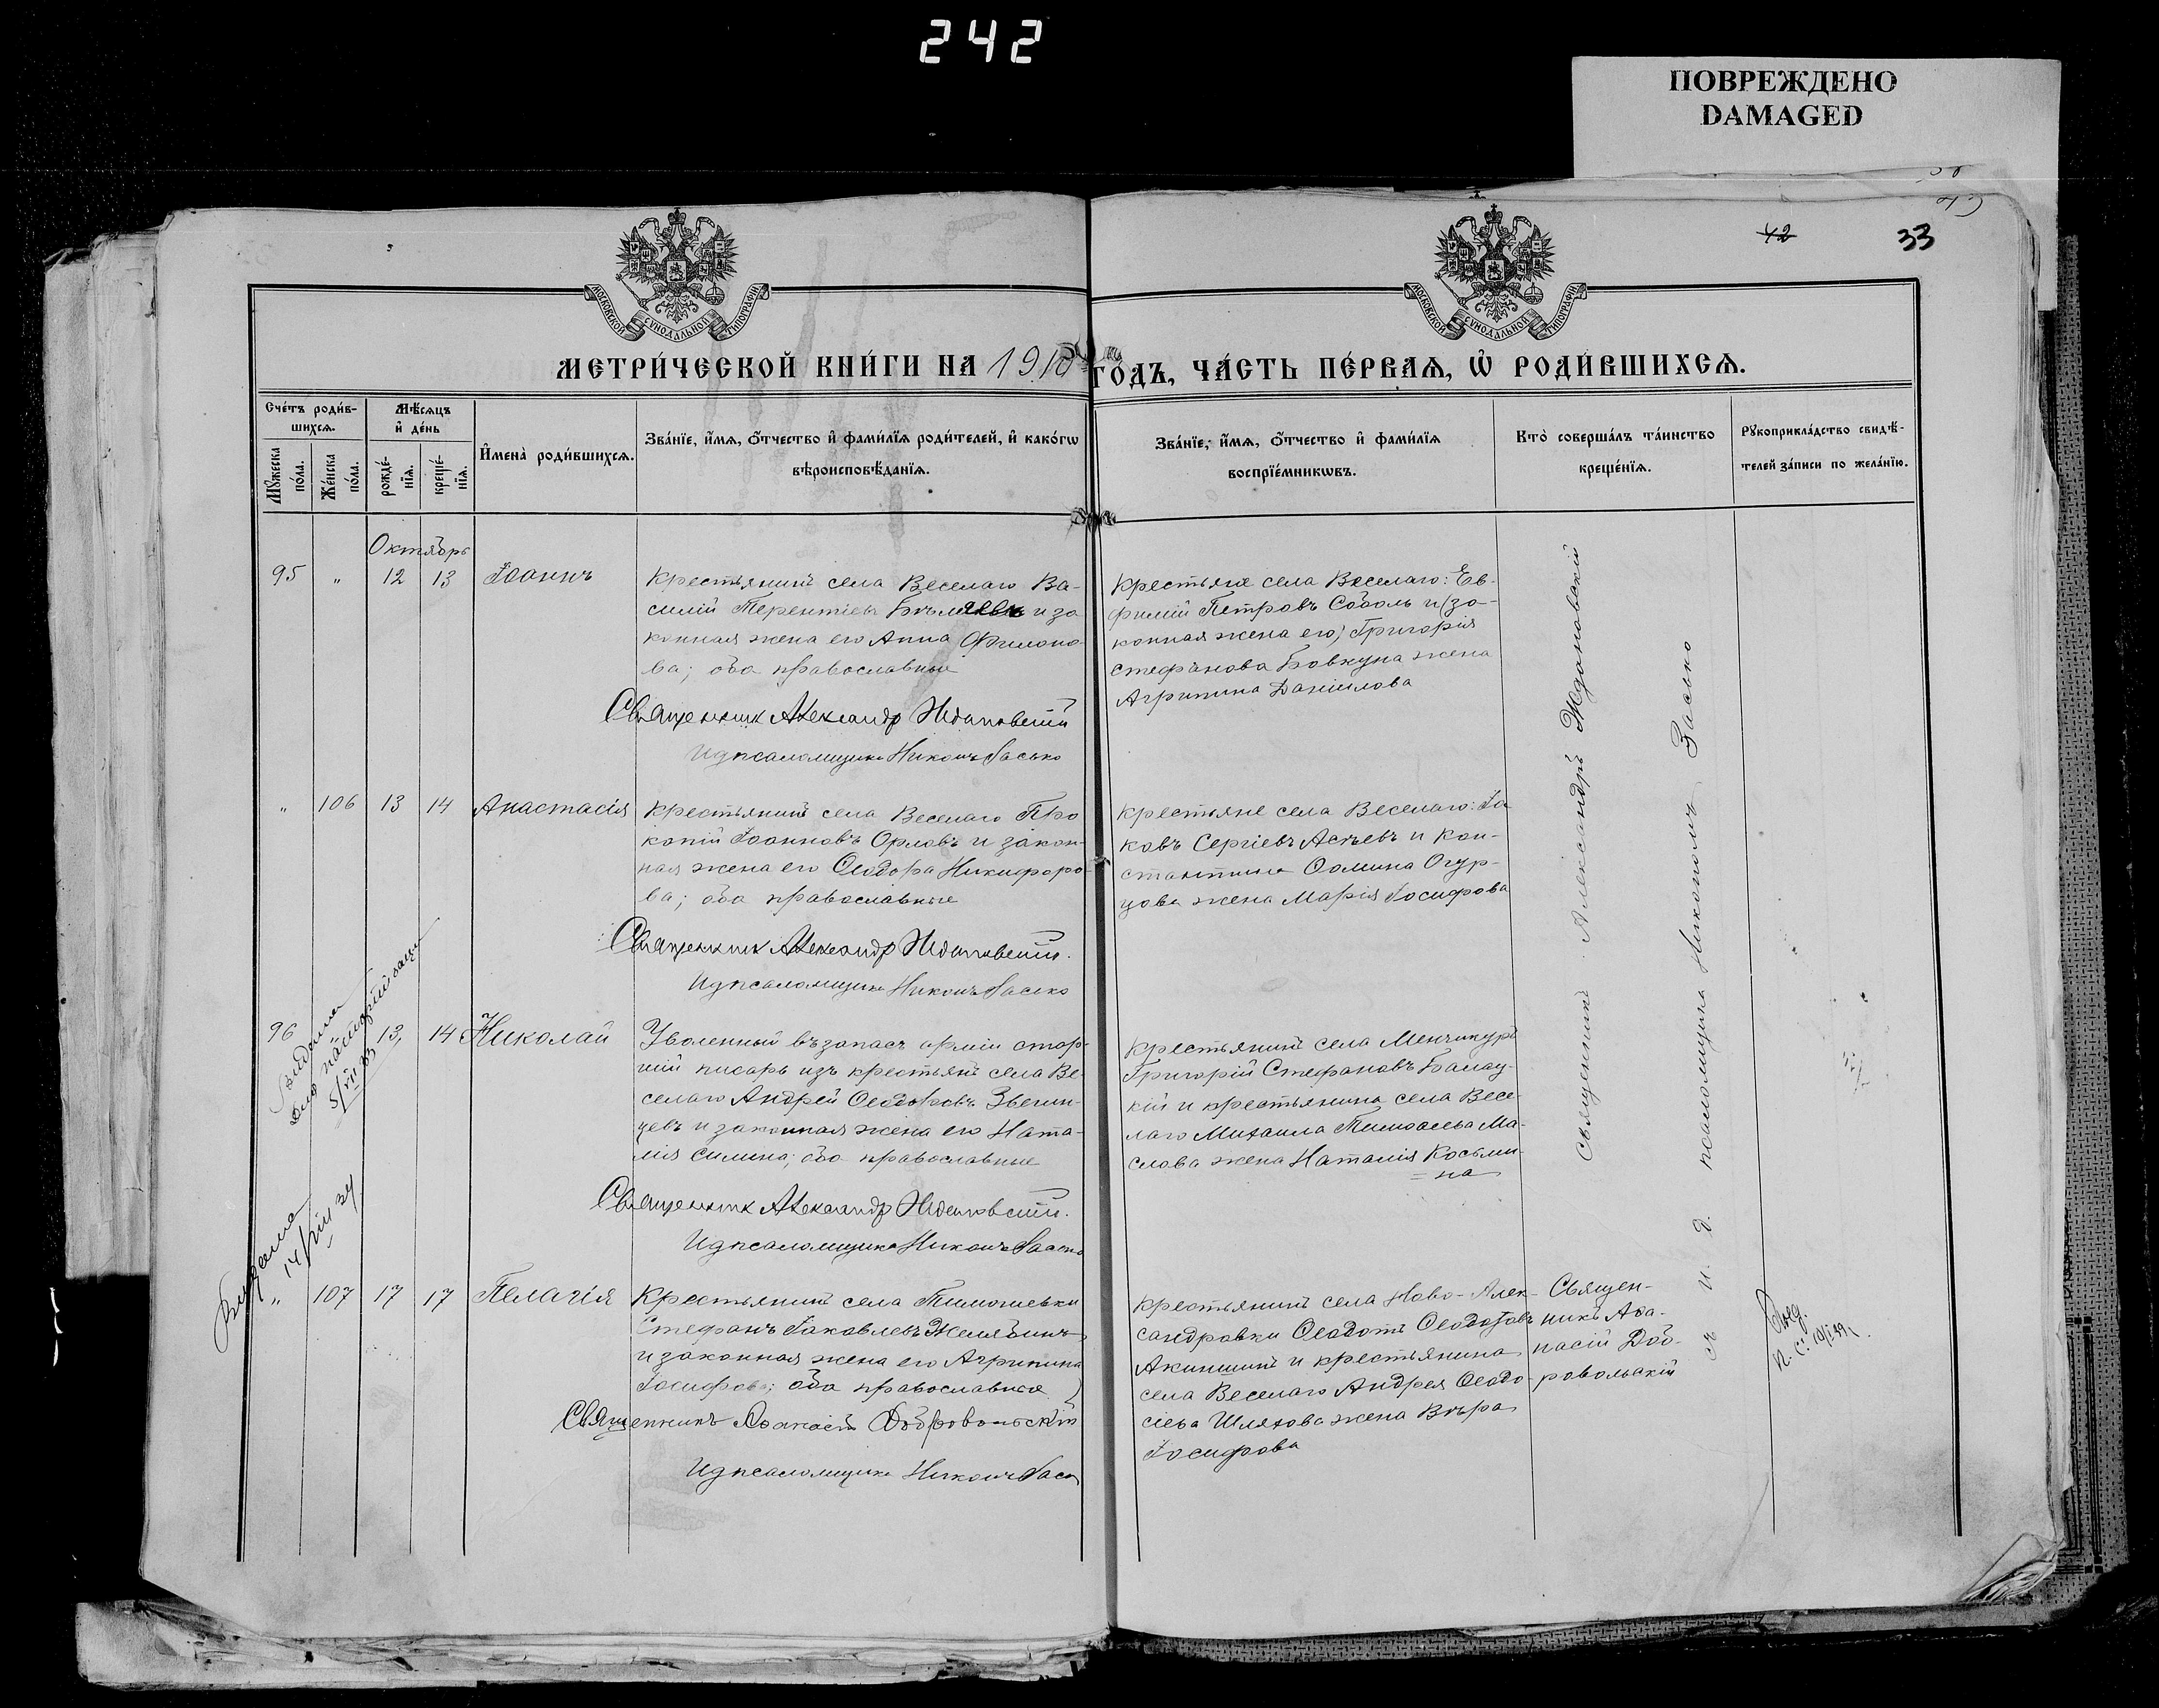 242
ПОВРЕЖДЕНО
DAMAGED
42
33
МОСКОВСКОЙ СѴНОДАЛЬНОЙ ТИПОГРАФІИ
МОСКОВСКОЙ СѴНОДАЛЬНОЙ ТИПОГРАФІИ
МЕТРИ́ЧЕСКОЙ КНИ́ГИ НА 1910
ГО́ДЪ, ЧА́СТЬ ПЕ́РВАѦ, Ѡ҆ РОДИ́ВШИХСѦ.
Сче́тъ роди́в-
шихсѧ.
Мꙋ́жеска по́ла.
Же́нска по́ла.
Мѣ́сѧцъ
и҆ де́нь
рожде́-
нїѧ.
креще́-
нїѧ.
И҆мена̀ роди́вшихсѧ.
Зва́нїе, и҆́мѧ, ѻ҆́тчество и҆ фами́лїѧ роди́телей, и҆ како́гѡ
вѣроисповѣ́данїѧ.
Зва́нїе, и҆́мѧ, ѻ҆́тчество и҆ фами́лїѧ
воспрїе́мникѡвъ.
Кто̀ соверша́лъ та́инство
креще́нїѧ.
Рꙋкоприкла́дство свидѣ́-
телей за́писи по жела́нїю.
Октябрь
95 " 12 13 Іоаннъ
Крестьянинъ села Веселаго Ва-
силій Терентіевъ и за
конная жена его Анна Филоно-
ва; оба православные
Священник Александр Ждановский
И д псаломщика Никонъ Засько
Крестьяне села Веселаго: Ев-
фимій Петровъ Соболь и (за-
конная жена его) Григорія
Стефанова Бовкуна жена
Агрипина Даніилова
" 106 13 14 Анастасія
Крестьянинъ села Веселаго Про
копій Іоанновъ Орловъ и закон-
ная жена его Ѳеодора Никифоро-
ва; оба православные
Священник Александр Ждановский.
И д псаломщика Никонъ Засько
Крестьяне села Веселаго: Іа
ковъ Сергіевъ и Кон-
стантина Ѳомина Огур-
цова жена Марія Іосифова
96 " 13, 14 Николай
Уволенный въ запасъ арміи стар-
шій писарь изъ крестьянъ села Ве-
селаго Андрей Ѳеодоровъ Звегин-
цевъ и законная жена его Ната-
лія Силина; оба православные
Священник Александр Ждановский.
И д псаломщика Никонъ Засько
Крестьянинъ села Менчикуръ
Григорій Стефановъ Балац-
кій и крестьянина села Весе-
лаго Михаила Тимоѳеева Ма-
слова жена Наталія Косьми-
=на
Выдана
5/VII 33
Выдана
14/VIII 34
" 107 17 17 Пелагія
Крестьянинъ села Тимошевки
Стефанъ Іаковлевъ Желябинъ
и законная жена его Агрипина
Іосифова; оба православные
Священникъ Аѳанасій Добровольскій
И д псаломщика Никонъ Засько
Крестьянинъ села Ново-Алек-
сандровки Ѳеодотъ Ѳеодотовъ
Акиншинъ и крестьянина
села Веселаго Андрея Ѳеодо-
сіева Шляхова жена Вѣра
Іосифова
Священ-
никъ Аѳа-
насій Доб-
ровольскій
Священникъ Александръ Ждановскій
съ и. д. псаломщика Никономъ Засько